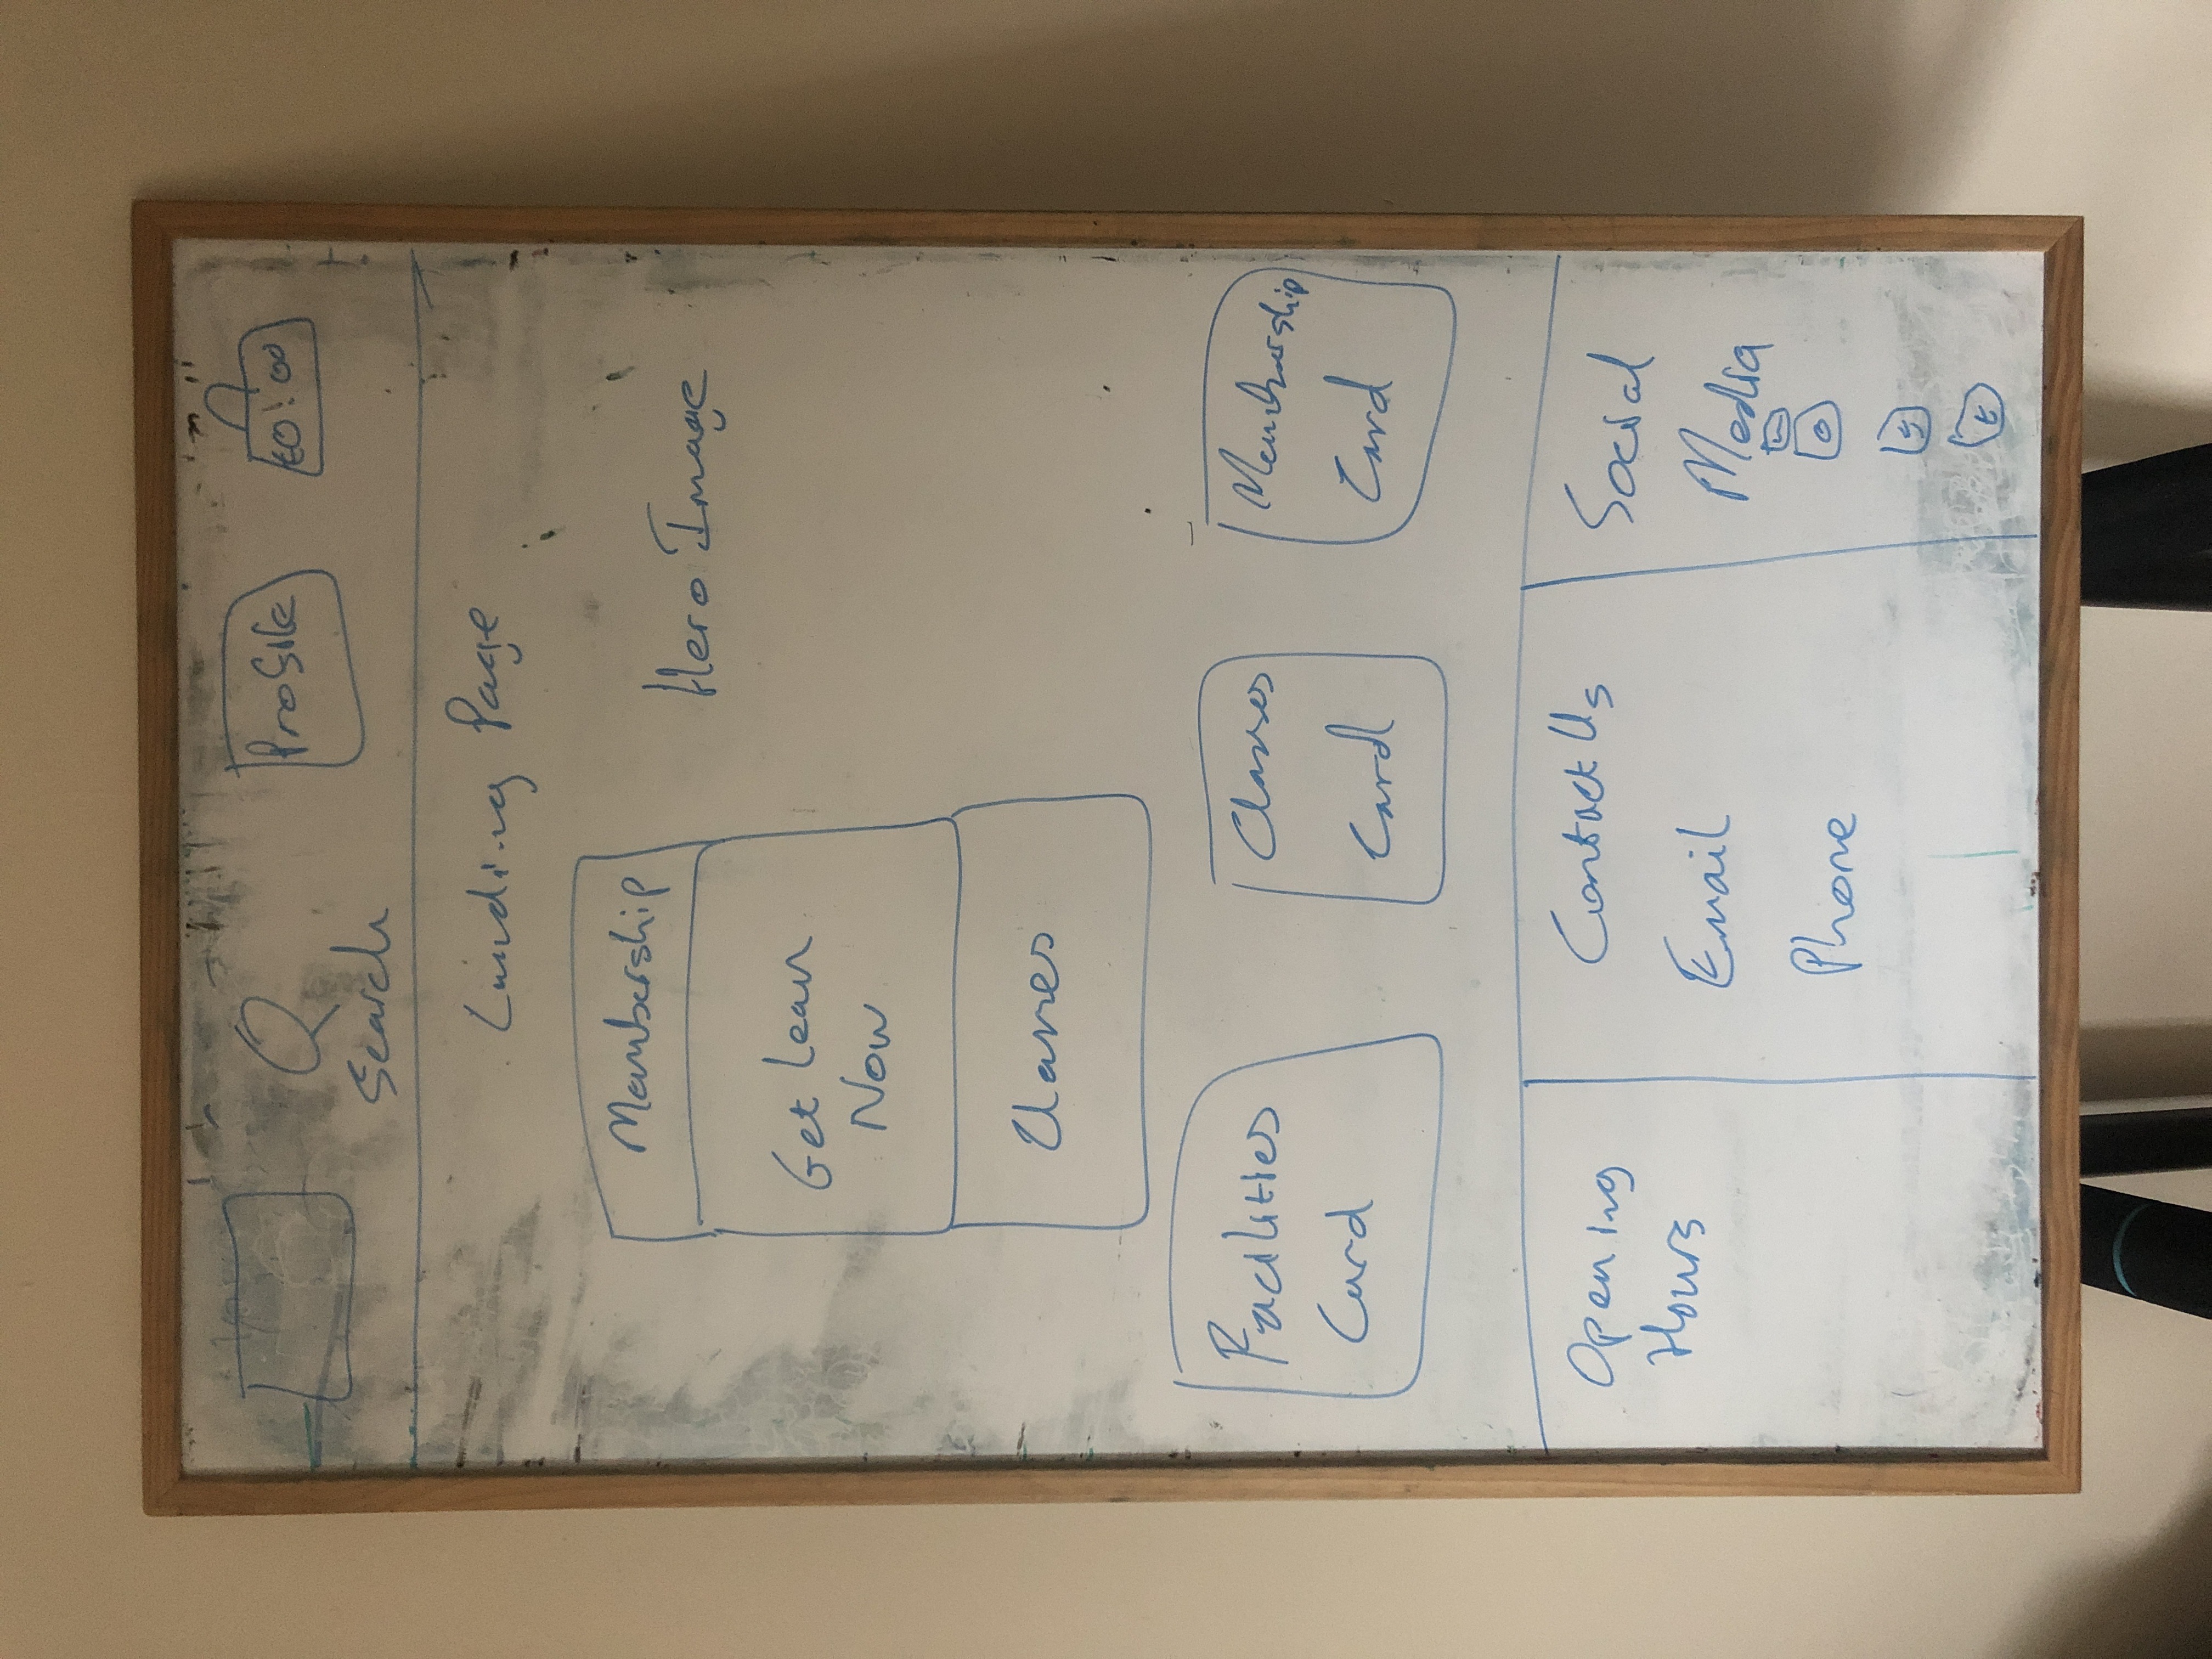 Profile
€0.00
Search
Landing Page
Membership
Hero Image
Get Lean
Now
Classes
Facilities
Card
Classes
Card
Membership
Card
Opening
Hours
Contact Us
Email
Phone
Social
Media